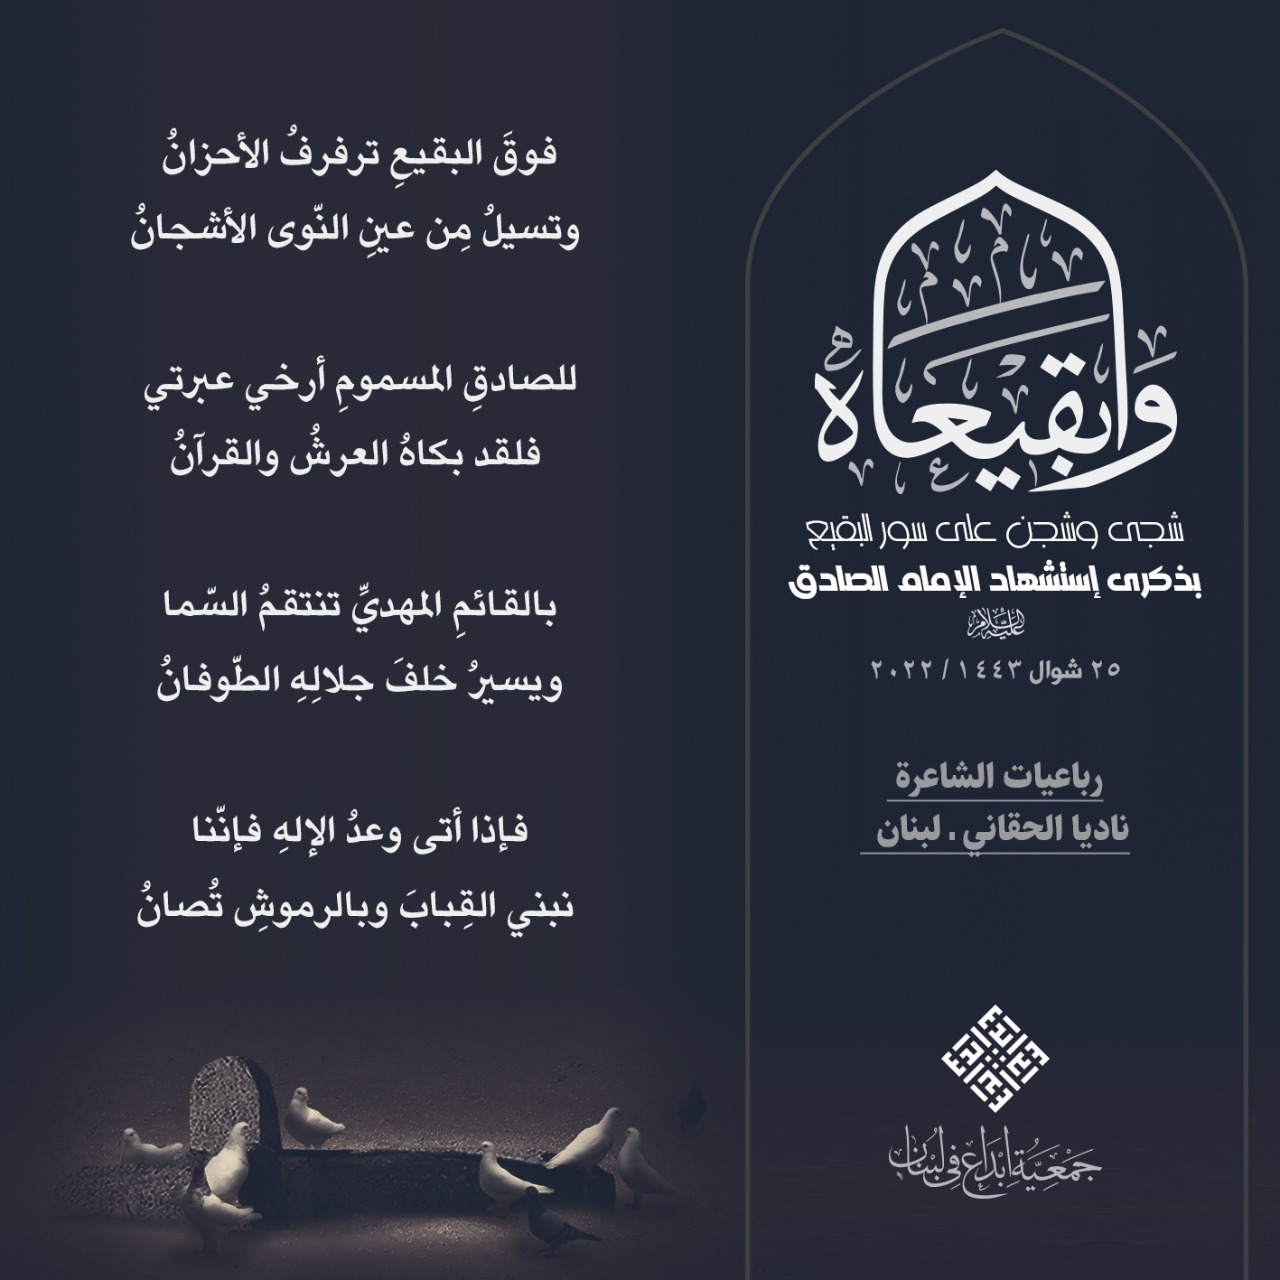 وابقيعاه
شجى وشجن على سور البقيع
بذكرى إستشهاد الإمام الصادق
عليه السلام
٢٥ شوال ١٤٤٣ / ٢٠٢٢
رباعيات الشاعرة
ناديا الحقاني . لبنان
فوقَ البقيعِ ترفرفُ الأحزانُ
وتسيلُ مِن عينِ النّوى الأشجانُ
للصادقِ المسمومِ أرخي عبرتي
فلقد بكاهُ العرشُ والقرآنُ
بالقائمِ المهديِّ تنتقمُ السّما
ويسيرُ خلفَ جلالِهِ الطّوفانُ
فإذا أتى وعدُ الإلهِ فإنّنا
نبني القِبابَ وبالرموشِ تُصانُ
جَمْعِيَّةِ إبْدَاع فِي لبْنُان